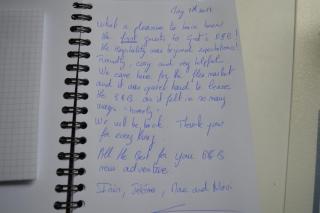 What a pleasure to have been
the first guests to 's B&B!
The hospitality was beyond expectations!
Friendly, cosy and very helpful.
We came here for the flea market
and it was quite hard to leave
the B&B as it felt in so many
ways "homely".
We will be back. Thank you
for everything.
All the best for your B&B
new adventure.
, Jérôme, and